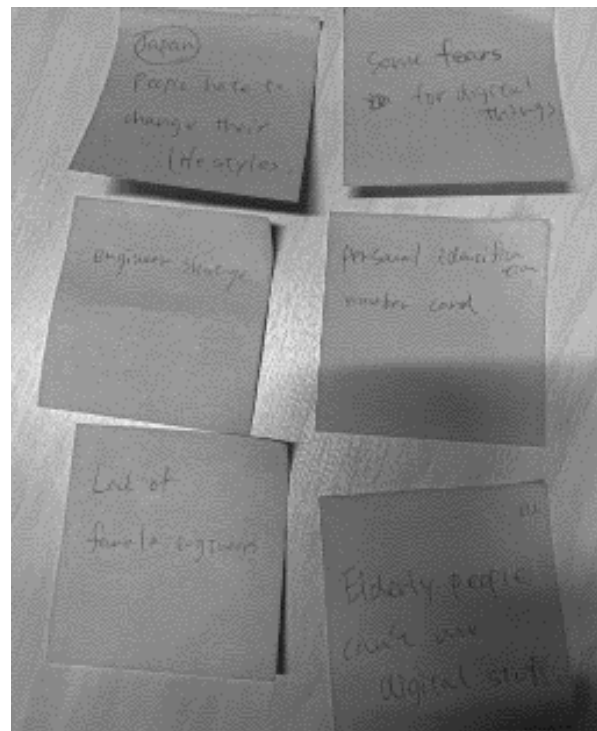 Japan
People hate to
change their
lifestyles
Some fears
for digital
things
engineer shortage
personal identification
number card
Lack of
female engineers
Elderly people
can't use
digital stuff